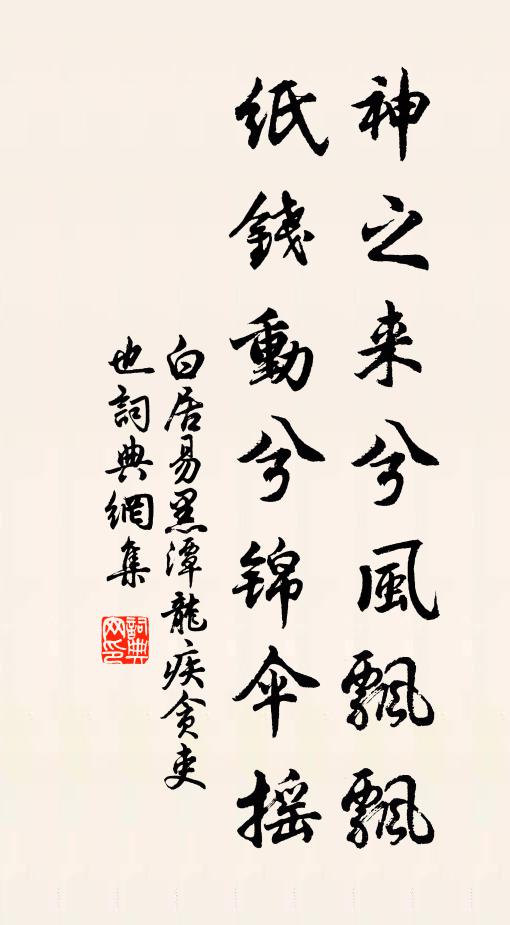 神之来兮風飄飄
紙錢動兮锦伞摇
白居易黑潭龍疾貪吏
也詞典網集
詞典
网印